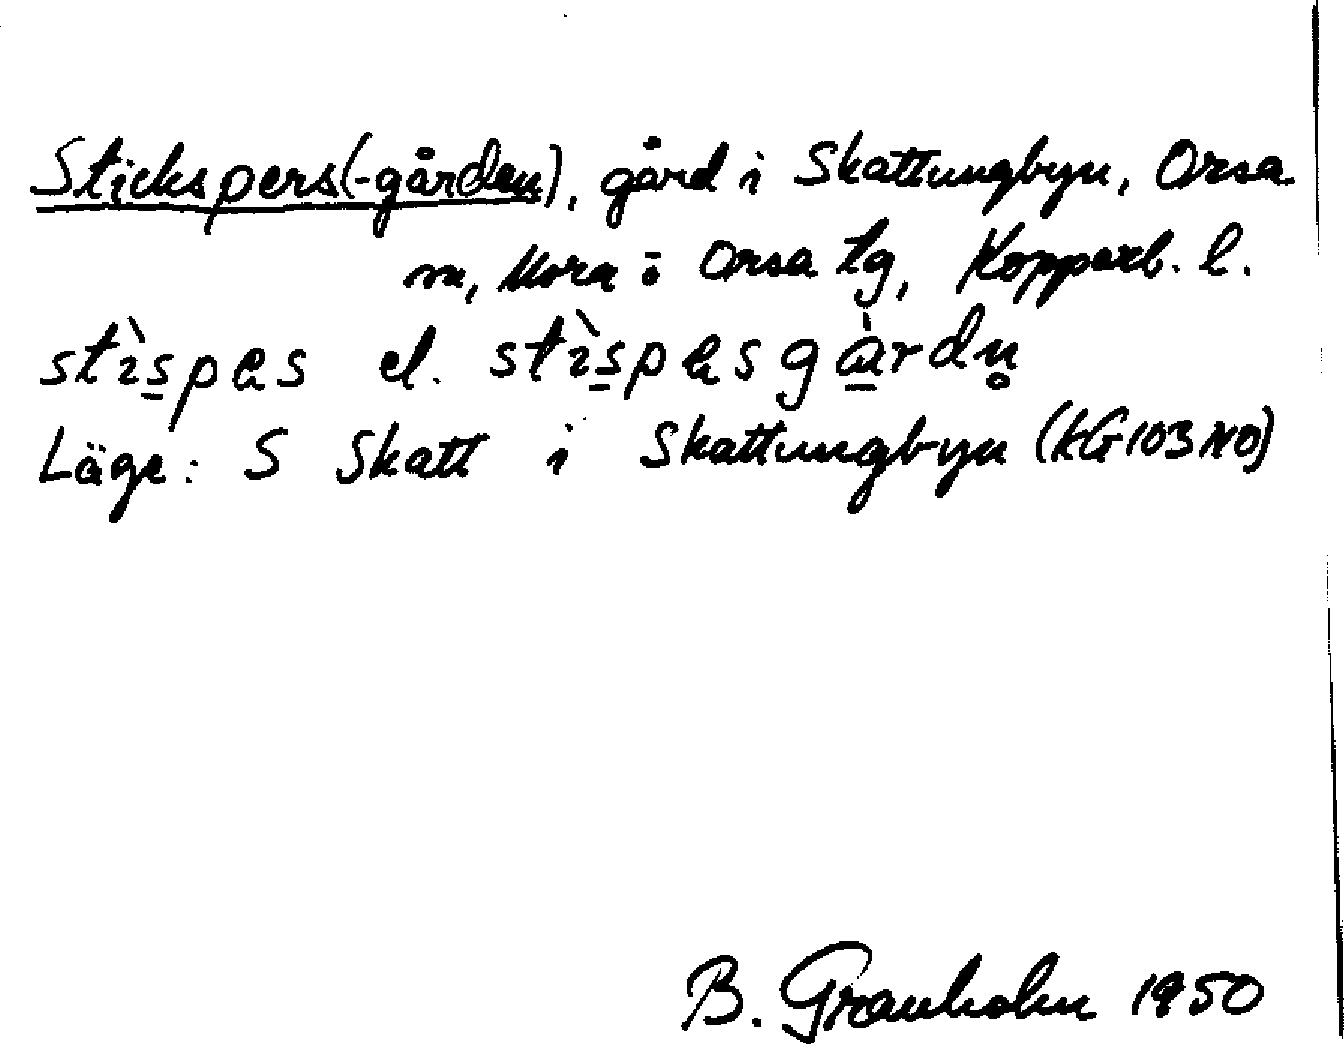 Stickspers(-gården), gård i Skattungbyn, Orsa
sn, Mora o Orsa tg, Kopparb. l.
stìspes el. stìspesgàrdn̥
Läge: S Skatt i Skattungbyn (KG103NO)
B. Granholm 1950